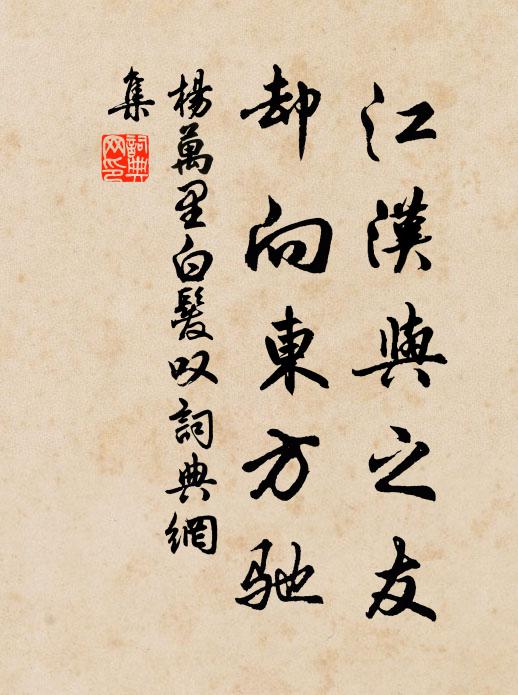 江漢與之友
却向東方馳
楊萬里白髮叹詞典網
集
詞典
网印